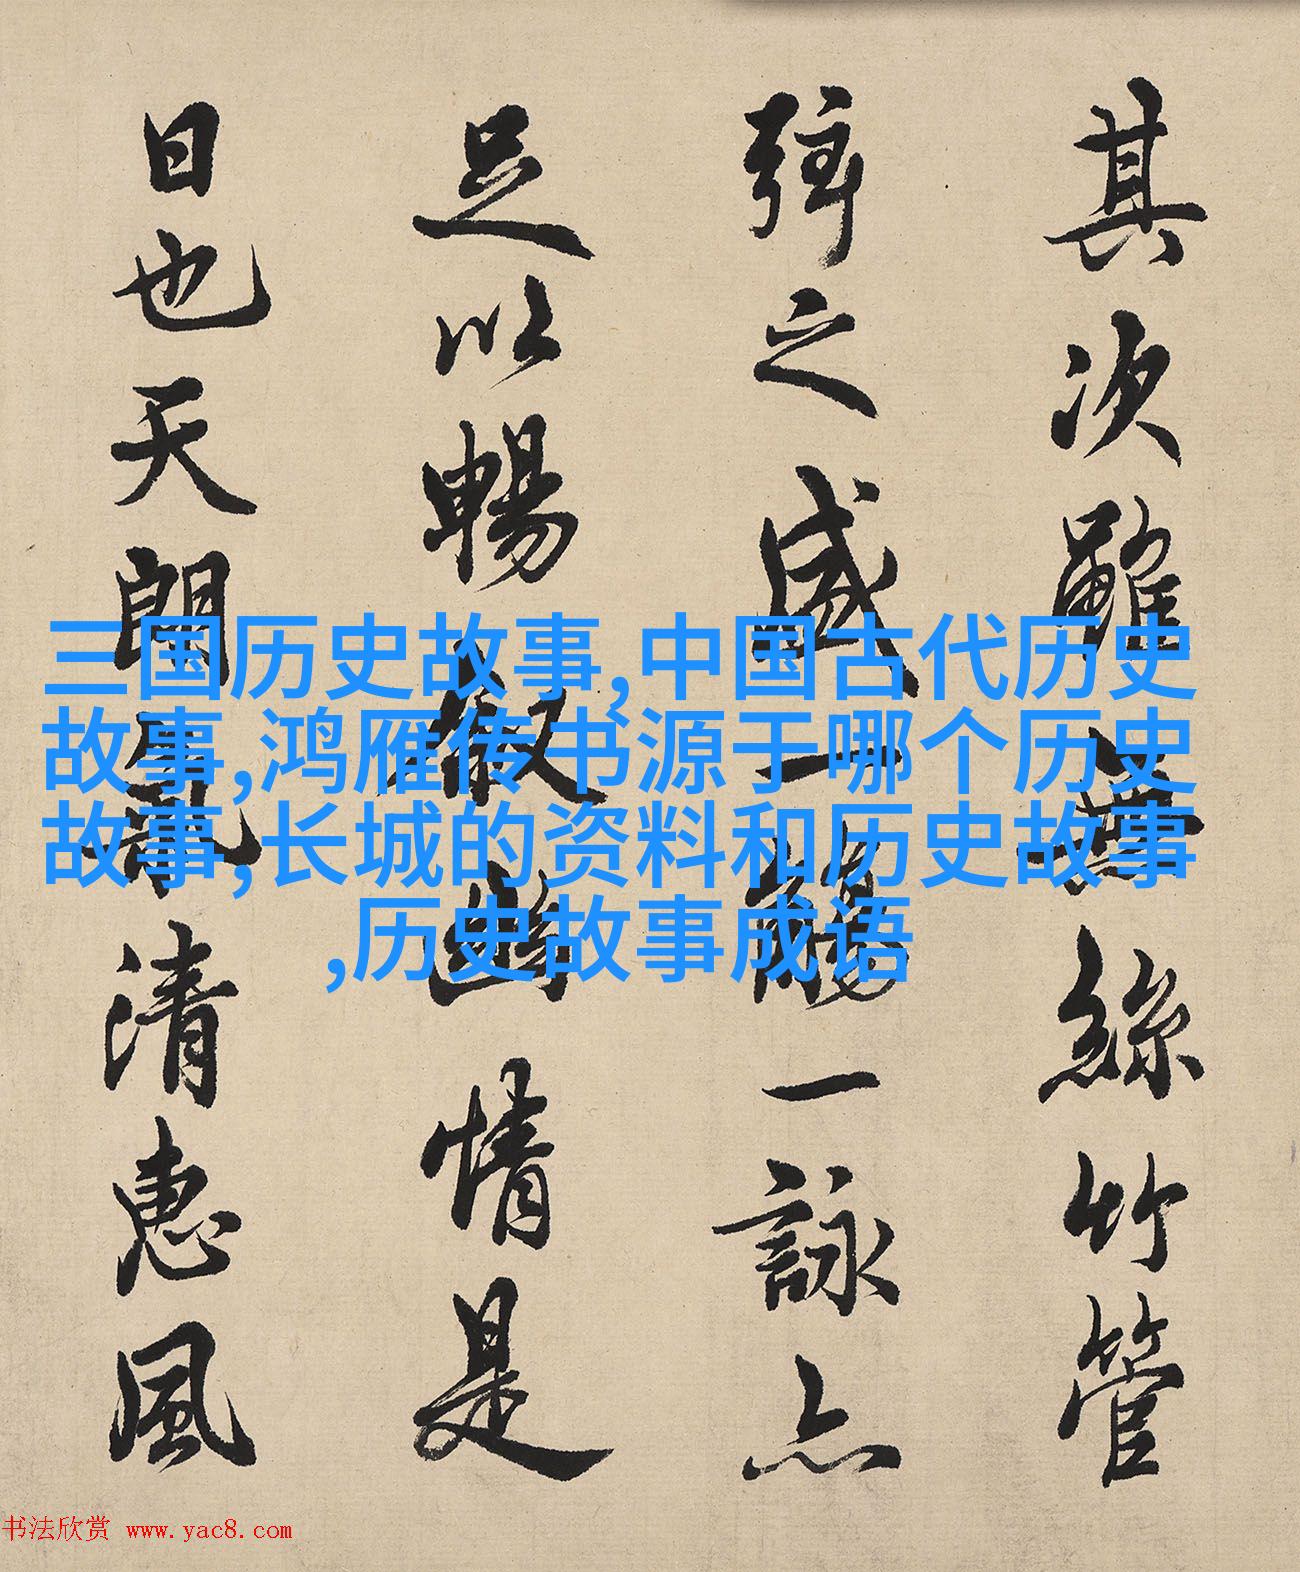 其次雖無絲竹管
弦之盛一觴一詠亦
足以暢叙幽情是
日也天朗氣清惠風
三国历史故事,中国古代历史
故事,鸿雁传书源于哪个历史
故事,长城的资料和历史故事
,历史故事成语
书法欣赏 www.yac8.com